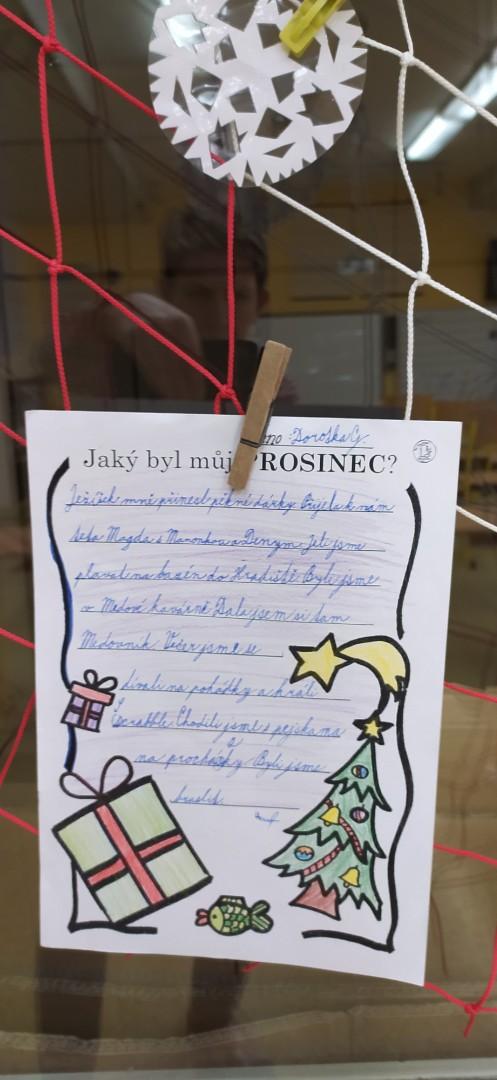 Dorotka G.
Jaký byl můj PROSINEC?
Ježíšek mně přinesl pěkné dárky. Přijela k nám
teta Magda s Mamonkou a Denym. Jeli jsme
plavat na bazén do Hradiště. Byli jsme
v Medové kavárně. Dala jsem si tam
Medovník. Večer jsme se
dívali na pohádky a hráli
Scrabble. Chodili jsme s pejska na
na procházky. Byli jsme
bruslit.